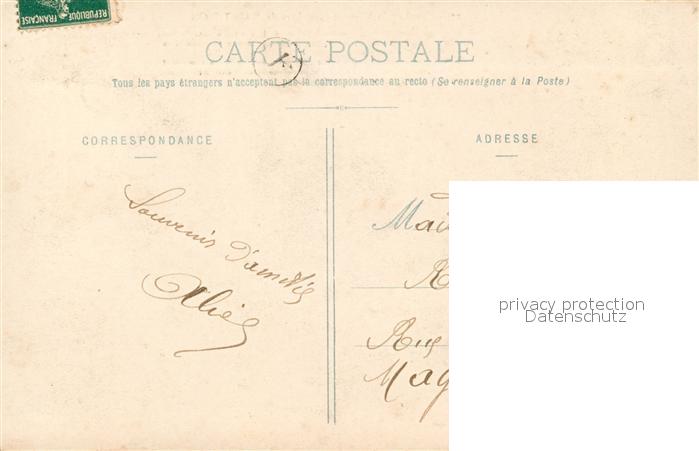 REPUBLIQUE
FRANÇAISE
CARTE POSTALE
Tous les pays étrangers n'acceptent pas la correspondance au recto (Se renseigner à la Poste)
CORRESPONDANCE
ADRESSE
Souvenir d'amitié
Mad
R
Rue
Mag
privacy protection
Datenschutz